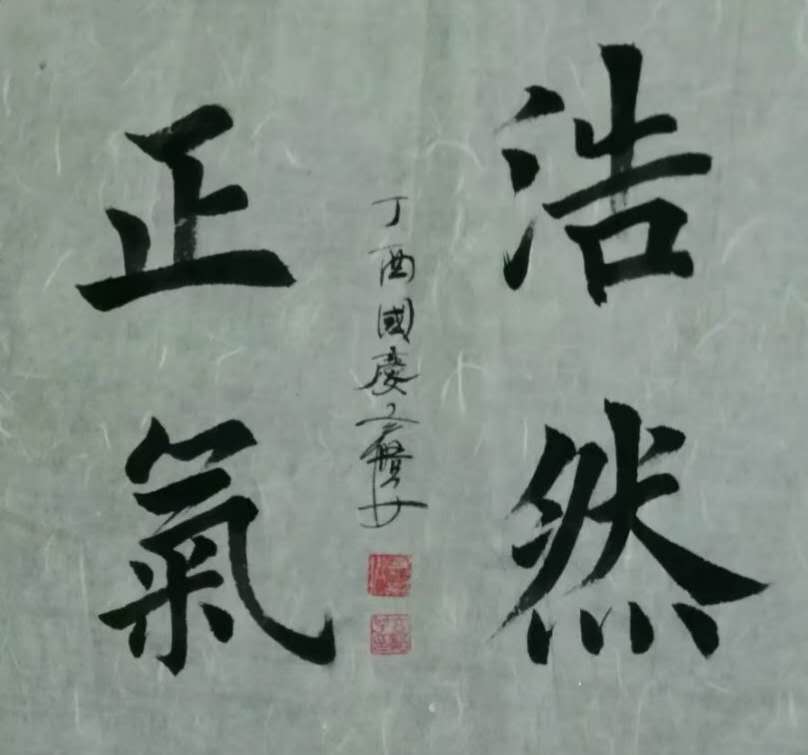 浩然
正氣
丁酉國慶